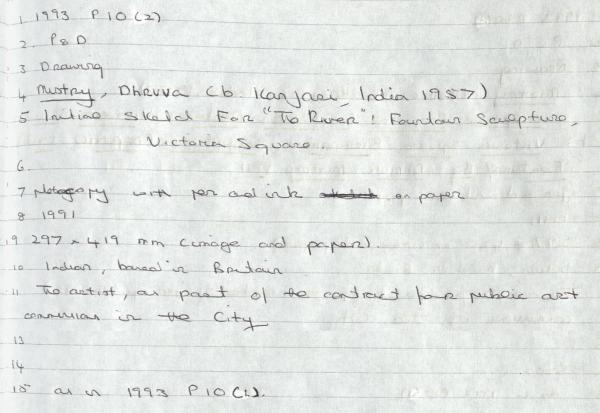 1 1993 P10(2)
2. P&D
3 Drawing
4 Mistry, Dhruva (b. Kanjari, India 1957)
5 Initial Sketch For "The River": Fountain Sculpture,
Victoria Square.
6.
7 photocopy with pen and ink on paper
8 1991
9 297 x 419 mm (image and paper).
10 Indian, based in Britain
11 The artist, as part of the contract for public art
commission in the City
13
14
15 as in 1993 P10(1).